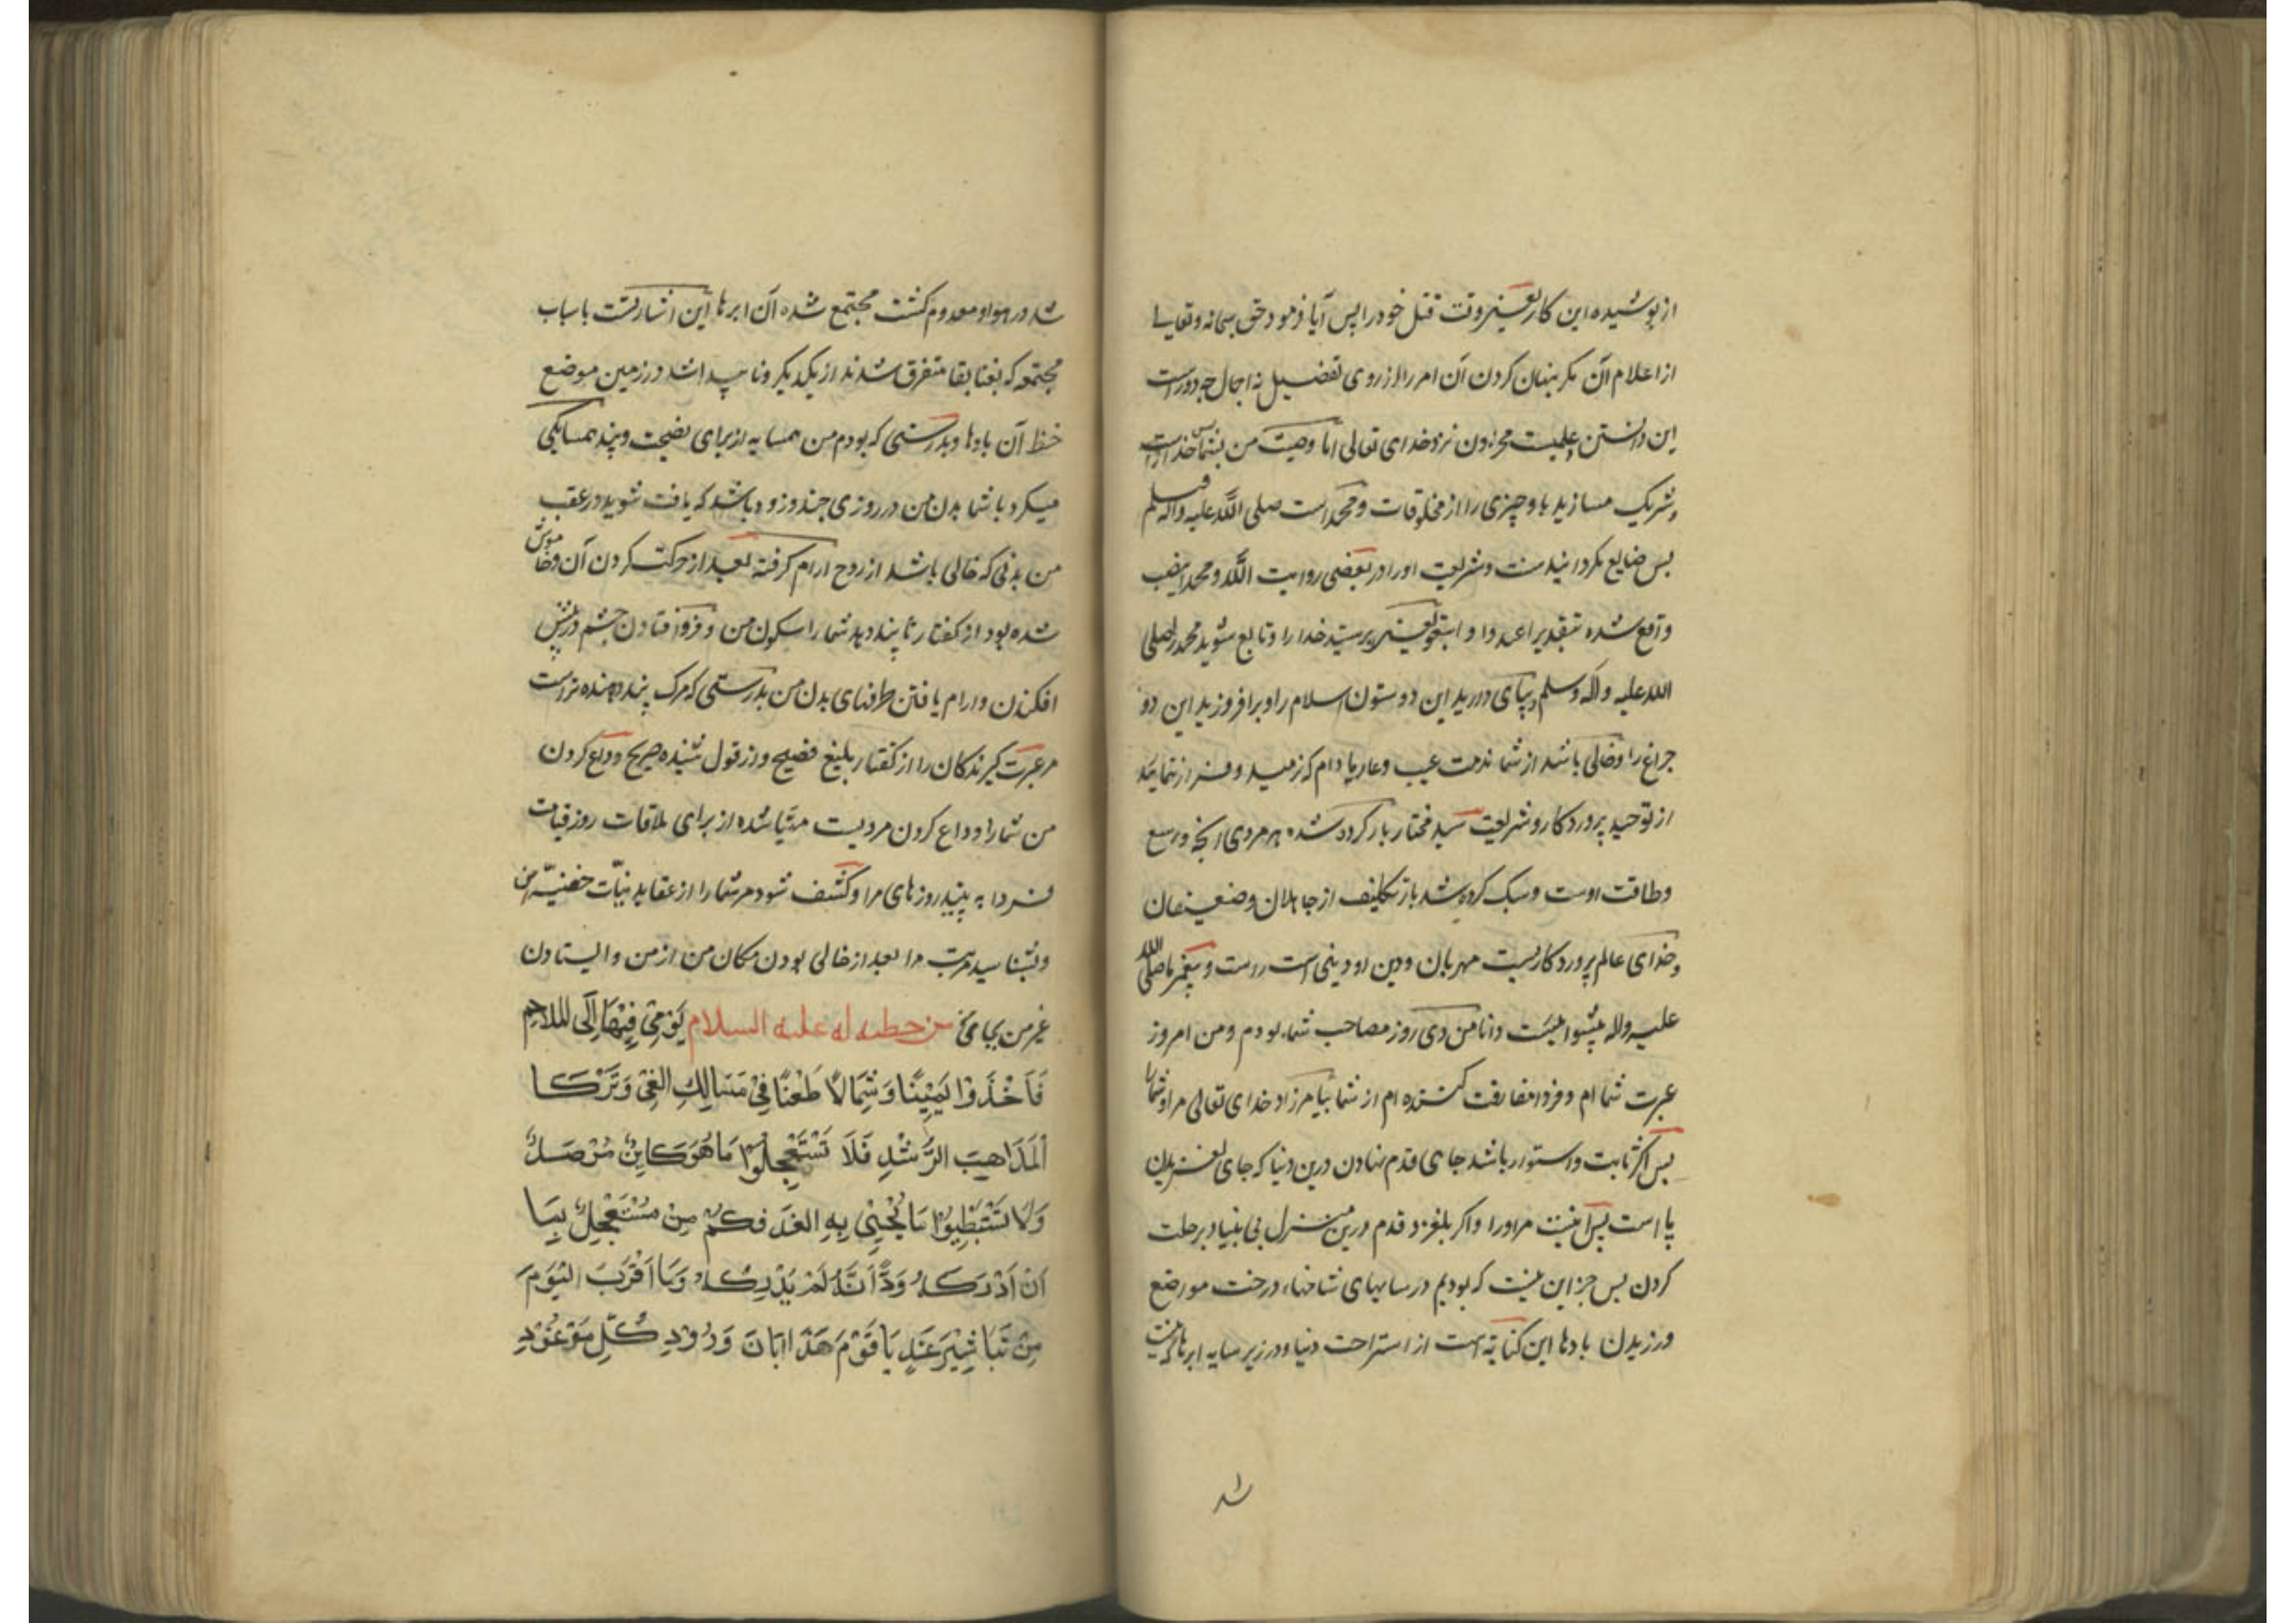 از پوشیده این کار یعنی وقت قتل خود را پس آیا فرمود حق سبحانه و تعالی
از اعلام آن مکر پنهان کردن آن امر را از روی تفضیل نه اجمال چه دور است
این دانستن علمیست مخزون نزد خدای تعالی اما وصیت من بشما پس خدا را
و شریک مسازید با و چیزی را از مخلوقات و محمد است صلی الله علیه و آله وسلم
پس ضایع مکردانید سنت و شریعت او را در بعضی روایت الله و محمدا بنصب
واقع شده بتقدیر اعبدوا و اتبعوا یعنی بپرستید خدا را و تابع شوید محمد را صلی
الله علیه و آله وسلم و بپای دارید این دو ستون اسلام را و برافروزید این دو
چراغ را و خالی باشد از شما مذمت عیب و عار مادام که نرمید و فرار ننمایید
از توحید پروردکار و شریعت سید مختار بار کرده شده هر مردی آنچه وسع
و طاقت اوست و سبک کرده شد بار تکلیف از جاهلان و ضعیفان
و خدای عالم پروردکاریست مهربان و دین او دینی است راست و پیغمبر ما صلی الله
علیه و آله پیشوائیست دانا من دی روز مصاحب شما بودم و من امروز
عبرت شما ام و فردا مفارقت کننده ام از شما بیامرزاد خدای تعالی مرا و شما را
پس اکر ثابت و استوار باشد جای قدم نهادن درین دنیا که جای لغزیدن
پا است پس آنیست مراورا و اکر بلغزد قدم درین منزل بی بنیاد برحلت
کردن پس جز این نیست که بودیم در سایهای شاخهاء درخت مواضع
ورزیدن بادها این کنایه است از استراحت دنیا و در زیر سایه ابرها که نیست
شد
شد در هوا و معدوم کشت مجتمع شده آن ابرها این اشارتست باسباب
مجتمعه که بفنا بقا متفرق شدند از یکدیکر و ناپیدا شد در زمین موضع
خط آن بادها و بدرستی که بودم من همسایه از برای نصیحت و پند همسایکی
میکرد با شما بدن من در روزی چند و زود باشد که یافت شوید در عقب
من بدنی که خالی باشد از روح ارام کرفته بعد از حرکت کردن آن و خاموش
شده بود از کفتار تا پند دهد شما را سکون من و فرو افتادن چشم در پیش
افکندن و ارام یافتن طرفهای بدن من بدرستی که مرک پند دهنده تر است
مر عبرت کیرندکان را از کفتار بلیغ فصیح و از قول شنیده صریح وداع کردن
من شما را وداع کردن مردیست مهیا شده از برای ملاقات روز قیامت
فردا به بینید روزهای مرا و کشف شود مر شما را از عقاید نیات خفیه من
و بشناسید مرتبت مرا بعد از خالی بودن مکان من از من و ایستادن
غیر من بجای من من خطبه له علیه السلام یومی فیها الی الملاحم
فَاَخَذُوا یَمِیْنًا وَ شِمَالًا طَعْنًا فِیْ مَسَالِكِ الغَیِّ وَ تَرْكَا
لمَذَاهِبِ الرُّشْدِ فَلَا تَسْتَعْجِلُوا مَا هُوَ کَایِنٌ مُرْصَدٌ
وَلَا تَسْتَبْطِئُوا مَا یَجِیْئُ بِهِ الغَدُ فَکَمْ مِنْ مُسْتَعْجِلٍ بِمَا
اَنْ اَدْرَکَهُ وَدَّ اَنَّهُ لَمْ یُدْرِکْهُ وَ مَا اَقْرَبَ الیَوْمَ
مِنْ تَبَاشِیْرِ غَدٍ یَا قَوْمِ هَذَا اِبَّانُ وَرُوْدِ کُلِّ مَوْعُوْدٍ